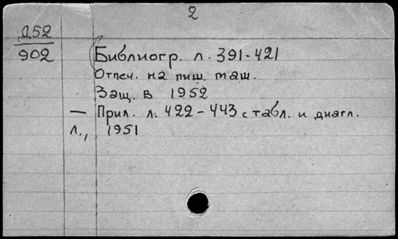 2
Д52
902
Библиогр. л. 391-421
Отпеч. на пиш. маш.
Защ. в 1952
— Прил. л. 422-443 с табл. и диагл.
л., 1951